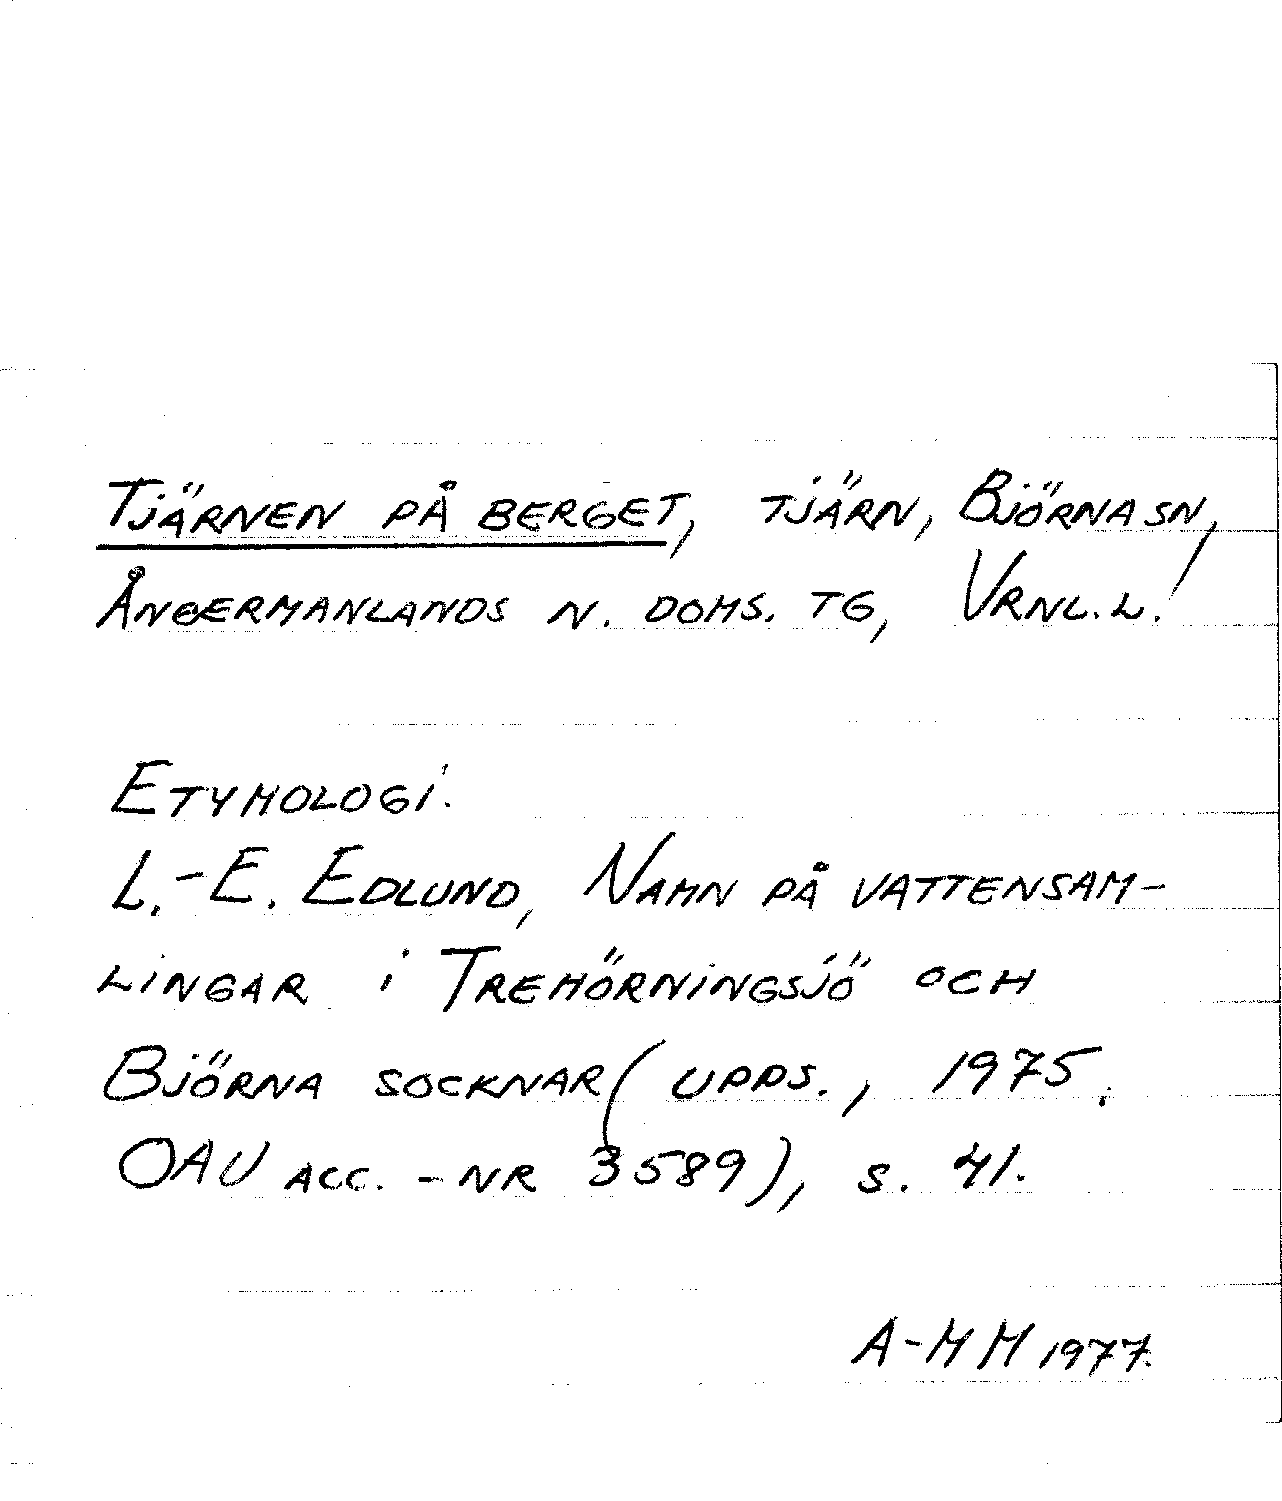 Tjärnen på berget, tjärn, Björna sn,
Ångermanlands n. doms. tg, Vrnl. l.
Etymologi.
L.-E. Edlund, Namn på vattensam-
lingar i Trehörningsjö och
Björna socknar (Upps., 1975.
OAU acc.-nr 3589), s. 41.
A-MM 1977.